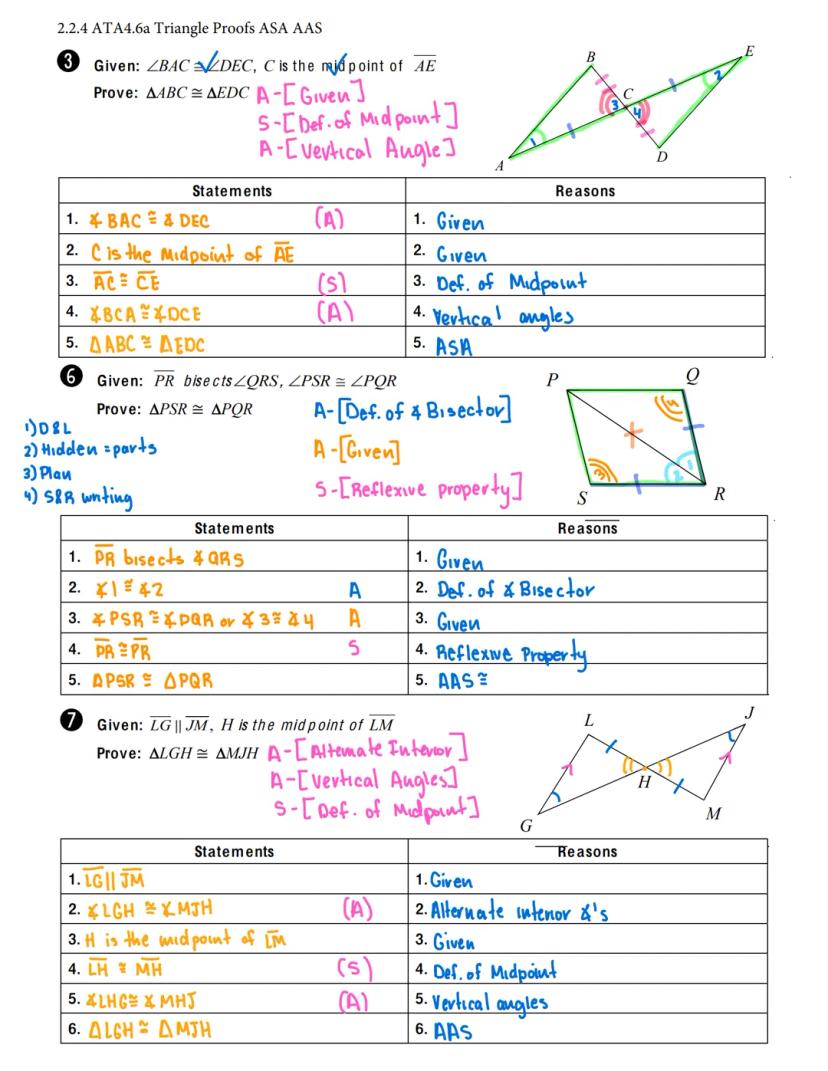 2.2.4 ATA4.6a Triangle Proofs ASA AAS
3 Given: ∠BAC ≅ ∠DEC, C is the midpoint of AE
Prove: ΔABC ≅ ΔEDC A-[Given]
S-[Def. of Midpoint]
A-[Vertical Angle]
B
E
C
A
D
1
2
3
4
Statements Reasons
1. ∡BAC ≅ ∡DEC (A) 1. Given
2. C is the Midpoint of AE 2. Given
3. AC ≅ CE (S) 3. Def. of Midpoint
4. ∡BCA ≅ ∡DCE (A) 4. Vertical angles
5. ΔABC ≅ ΔEDC 5. ASA
6 Given: PR bisects ∠QRS, ∠PSR ≅ ∠PQR
Prove: ΔPSR ≅ ΔPQR A-[Def. of ∡ Bisector]
1) D&L
2) Hidden = parts A-[Given]
3) Plan
4) S&R writing S-[Reflexive property]
P
Q
S
R
1
2
3
4
Statements Reasons
1. PR bisects ∡QRS 1. Given
2. ∡1 ≅ ∡2 A 2. Def. of ∡ Bisector
3. ∡PSR ≅ ∡PQR or ∡3 ≅ ∡4 A 3. Given
4. PR ≅ PR S 4. Reflexive Property
5. ΔPSR ≅ ΔPQR 5. AAS ≅
7 Given: LG || JM, H is the midpoint of LM
Prove: ΔLGH ≅ ΔMJH A-[Alternate Interior]
A-[Vertical Angles]
S-[Def. of Midpoint]
L
J
H
G
M
Statements Reasons
1. LG || JM 1. Given
2. ∡LGH ≅ ∡MJH (A) 2. Alternate interior ∡'s
3. H is the midpoint of LM 3. Given
4. LH ≅ MH (S) 4. Def. of Midpoint
5. ∡LHG ≅ ∡MHJ (A) 5. Vertical angles
6. ΔLGH ≅ ΔMJH 6. AAS